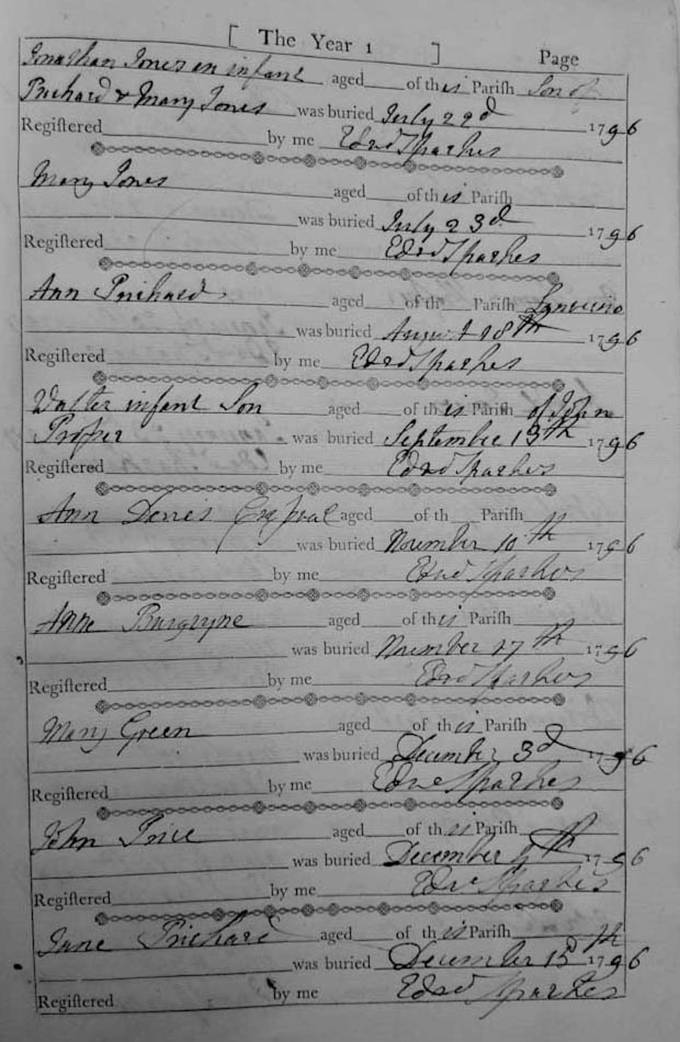 [ The Year 1 ] Page
Jonathan Jones an infant aged of this Parish Son of
Prichard & Mary Jones was buried July 22d 1796
Regiſtered by me Edwd Sparkes
Mary Jones aged of this Parish
was buried July 23d 1796
Regiſtered by me Edwd Sparkes
Ann Prichard aged of th Parish
was buried August 18th 1796
Regiſtered by me Edwd Sparkes
Walter infant Son aged of this Parish of John
Prosser was buried September 13th 1796
Regiſtered by me Edwd Sparkes
Ann aged of th Parish
was buried November 10th 1796
Regiſtered by me Edwd Sparkes
Anne aged of this Parish
was buried November 17th 1796
Regiſtered by me Edwd Sparkes
Mary Green aged of this Parish
was buried December 3d 1796
Regiſtered by me Edwd Sparkes
John Price aged of this Parish
was buried December 9th 1796
Regiſtered by me Edwd Sparkes
Jane Prichard aged of this Parish
was buried December 15th 1796
Regiſtered by me Edwd Sparkes